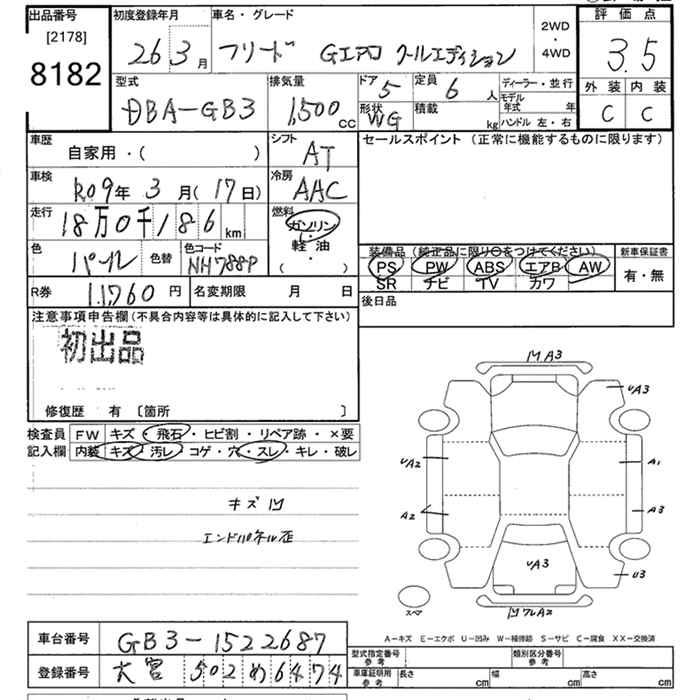 出品番号 初度登録年月 車名・グレード 評価点
[2178] 26年3月 フリード Gエアロ クールエディション 2WD・4WD 3.5
8182
型式 排気量 ドア 5 定員 6人 ディーラー・並行 外装 内装
DBA-GB3 1,500cc 形状 WG 積載 kg モデル年式 年 C C
ハンドル 左・右
車歴 自家用・( ) シフト AT セールスポイント (正常に機能するものに限ります)
車検 R09年3月(17日) 冷房 AAC
走行 18万0千186km 燃料 ガソリン・軽油・( )
色 パール 色替 色コード NH788P 装備品 (純正品に限り○をつけてください) 新車保証書
PS PW ABS エアB AW 有・無
SR ナビ TV カワ
R券 11,760円 名変期限 月 日 後日品
注意事項申告欄(不具合内容等は具体的に記入して下さい)
初出品
修復歴 有 [箇所 ]
検査員 FW キズ・飛石・ヒビ割・リペア跡・×要
記入欄 内装 キズ・汚レ・コゲ・穴・スレ・キレ・破レ
キズ凹
エンドパネル歪
凹A3
UA3
UA2
A1
A2
A3
UA3
U3
スペア
凹ワレA2
A-キズ E-エクボ U-凹み W-補修跡 S-サビ C-腐食 XX-交換済
車台番号 GB3-1522687
登録番号 大宮 502め6474
型式指定番号 参考 類別区分番号 参考
車庫証明用 参考 長さ cm 幅 cm 高さ cm